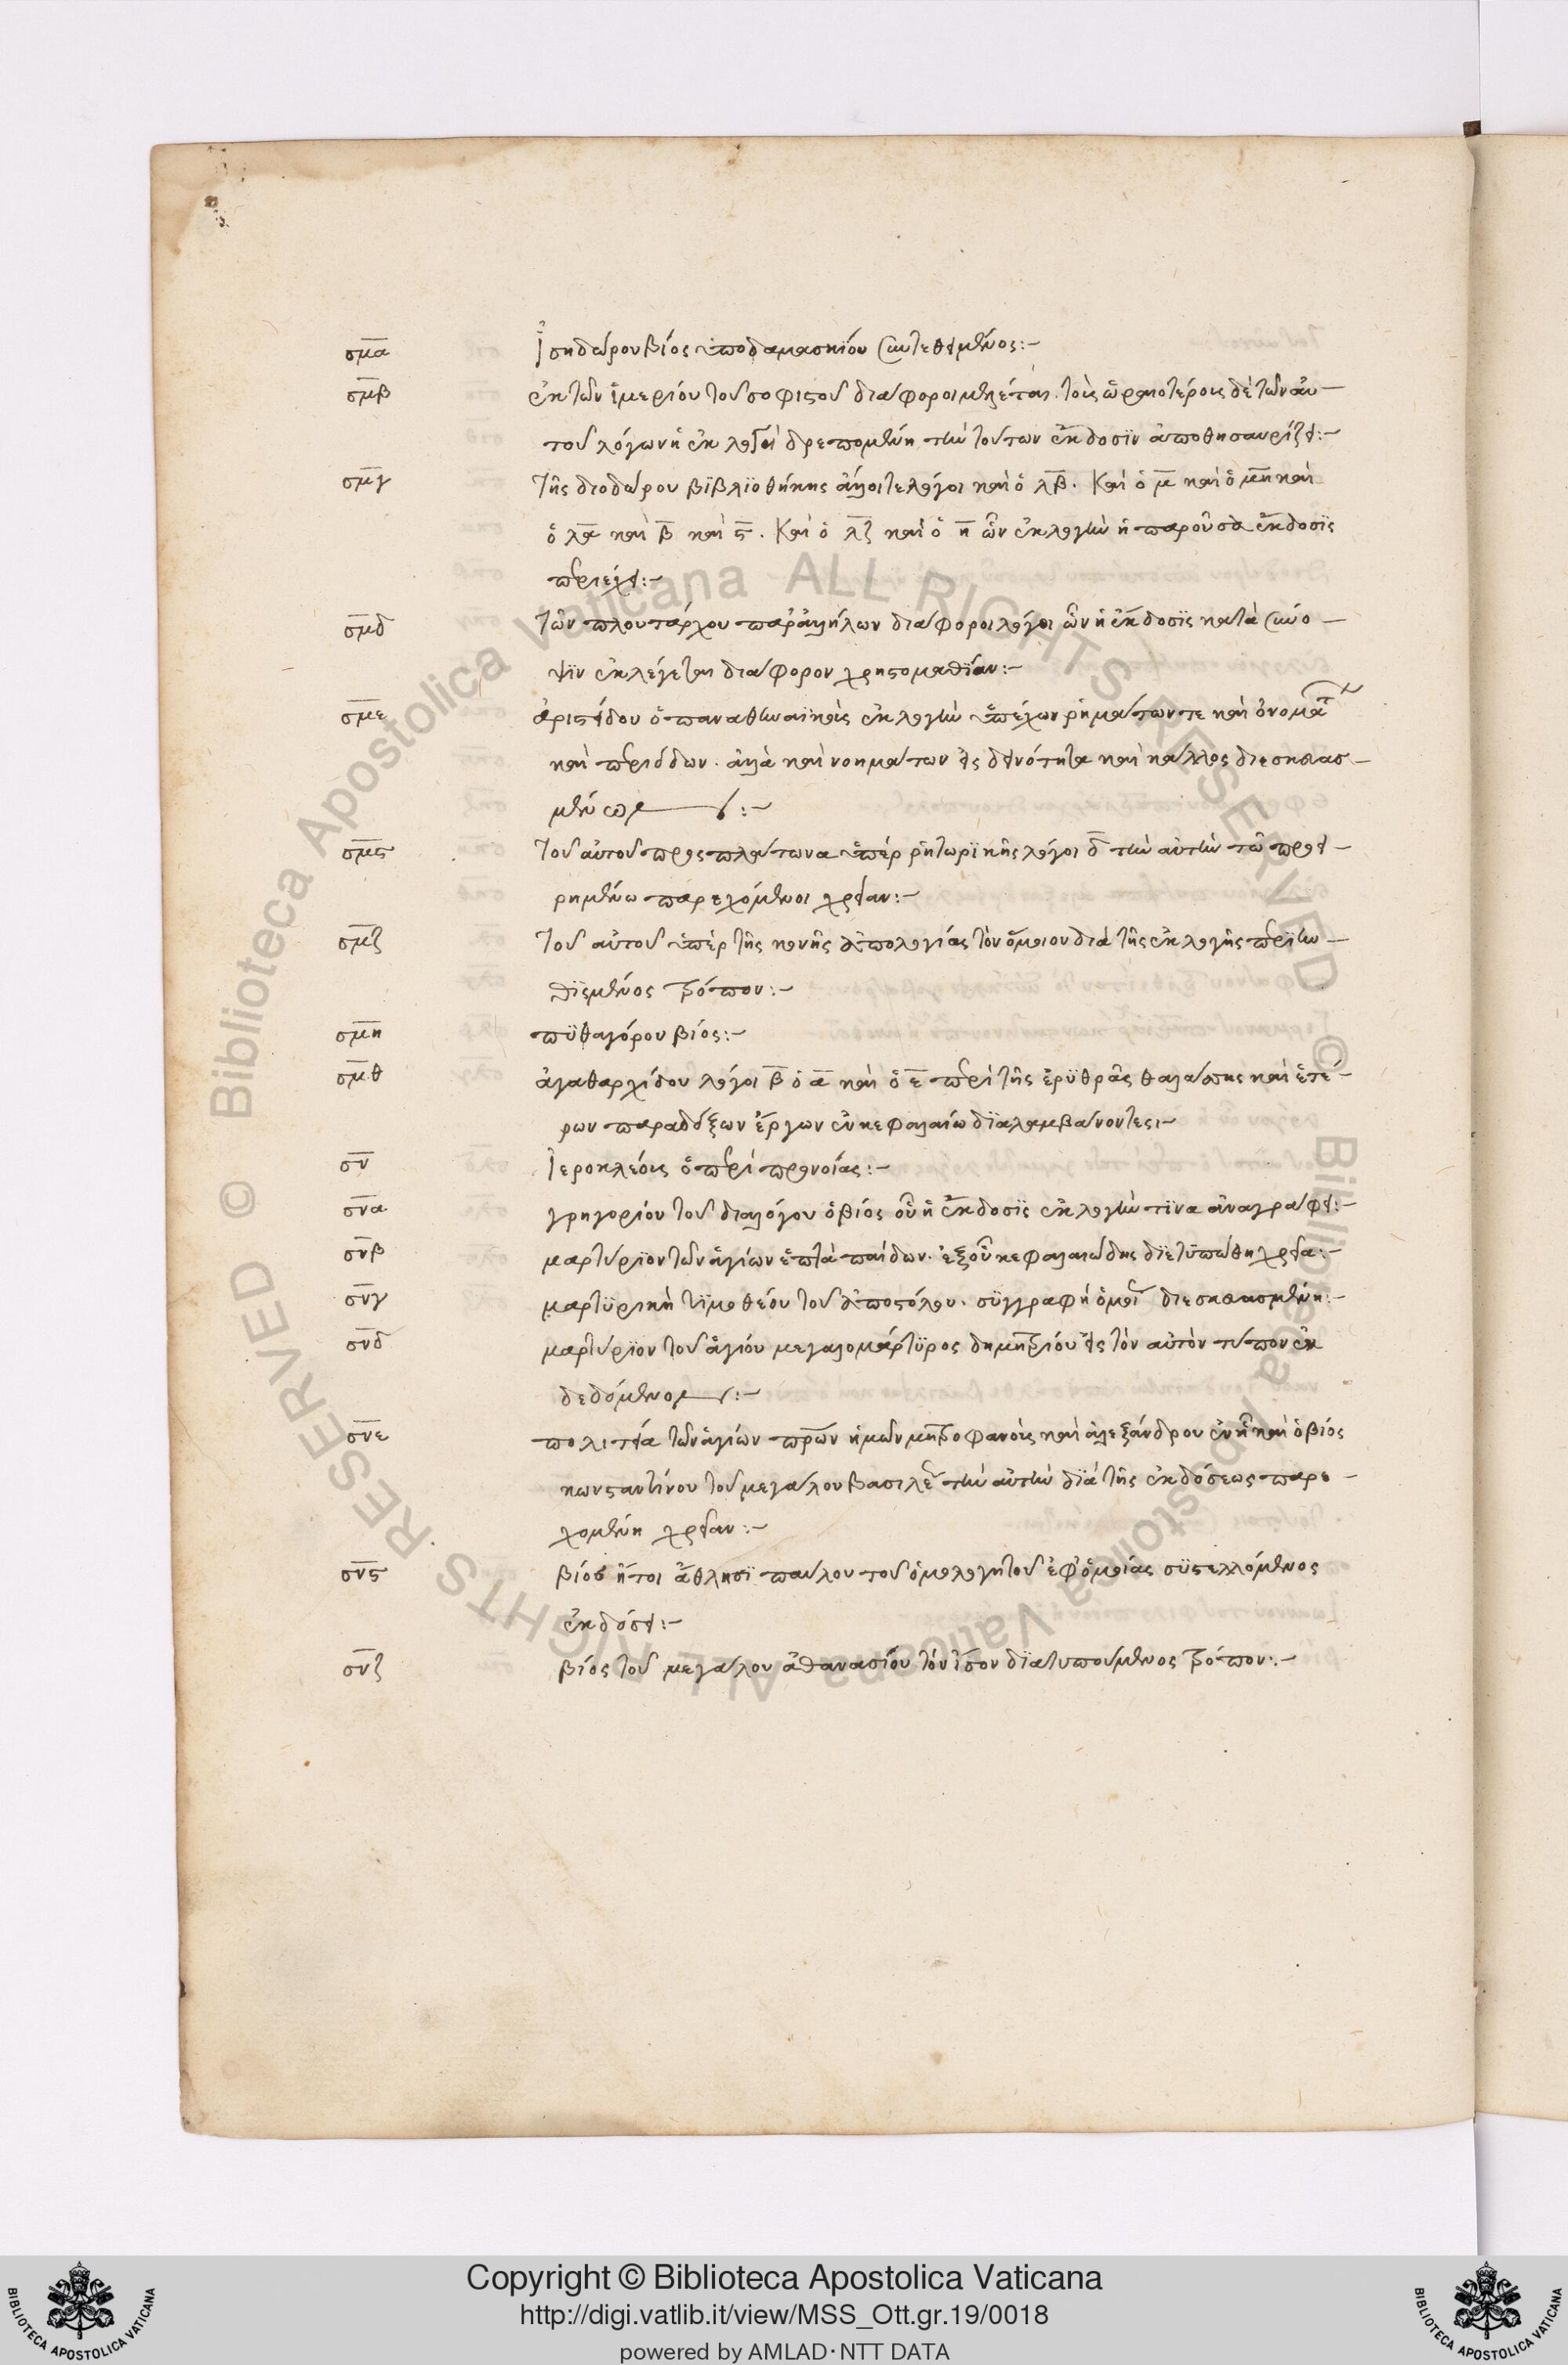 σμα Ἰσηδώρου βίος ὑπο δαμασκίου συντεθειμένος:-
σμβ ἐκ τῶν ἱμερίου τοῦ σοφιστοῦ διαφοροι μελέται. τοῖς ὡραιοτέροις δὲ τῶν αὐ-
τοῦ λόγων ἡ ἐκλογὴ δρεπομένη τὴν τούτων ἔκδοσϊν ἀποθησαυρίζει:-
σμγ τῆς διοδώρου βϊβλϊοθήκης ἄλλοι τε λόγοι καὶ ὁ λβ. Καὶ ὁ μ καὶ ὁ μη καὶ
ὁ λα καὶ β καὶ ς. Καὶ ὁ λζ καὶ ὁ η ὧν ἐκλογὴν ἡ παροῦσα ἔκδοσϊς
περιέχει:-
σμδ τῶν πλουτάρχου παραλλήλων διάφοροι λόγοι ὧν ἡ ἔκδοσϊς κατὰ σύνο-
ψϊν ἐκλέγεται διαφορον χρηστομαθΐαν:-
σμε ἀριστείδου ὁ παναθηναϊκὸς ἐκλογὴν ὑπέχων ῥημάτων τε καὶ ὀνομάτ
καὶ περιόδων. ἀλλὰ καὶ νοημάτων εἰς δεινότητα καὶ κάλλος διεσκευασ-
μένων:-
σμς τοῦ αὐτοῦ πρὸς πλάτωνα ὑπὲρ ῥητωρϊκῆς λόγοι δ τὴν αὐτὴν τῶ προει-
ρημένω παρεχόμενοι χρείαν:-
σμζ τοῦ αὐτοῦ ὑπὲρ τῆς κοινῆς ἀπολογίας τὸν ὅμοιον διὰ τῆς ἐκλογῆς περϊην-
θϊσμένος τρόπον:-
σμη πϋθαγόρου βίος:-
σμθ ἀγαθαρχίδου λόγοι β ὁ α καὶ ὁ ε περὶ τῆς ἐρϋθρᾶς θαλάσσης καὶ ἑτέ-
ρων παραδόξων ἔργων ἐν κεφαλαίω δϊαλαμβάνοντες:-
σν Ἱεροκλέους ὁ περὶ προνοίας:-
σνα γρηγορίου τοῦ διαλόγου ὁ βίος οὗ ἡ ἔκδοσϊς ἐκλογὴν τϊνα ἀναγράφει:-
σνβ μαρτύρϊον τῶν ἁγίων ἑπτὰ παίδων. ἐξ οὗ κεφαλαιώδης δϊετυπώθη χρεία:-
σνγ μαρτϋρικὴ τϊμοθέου τοῦ ἀποστόλου. σϋγγραφή ὁμοί διεσκευασμένη:-
σνδ μαρτύρϊον τοῦ ἁγίου μεγαλομάρτϋρος δημητρίου εἰς τὸν αὐτὸν τύπον ἐκ
δεδομένον:-
σνε πολιτεία τῶν ἁγίων πρων ἡμῶν μητροφάνους καὶ ἀλεξάνδρου ἐν ἧ καὶ ὁ βίος
κωνσταντίνου τοῦ μεγάλου βασιλέ τὴν αὐτὴν δϊὰ τῆς ἐκδόσεως παρε-
χομένη χρείαν:-
σνς βίος ἤτοι ἄθλησϊ παύλου τοῦ ὁμολογητοῦ ἐφ' ὁμοίας σϋστελλόμενος
ἐκδόσει:-
σνζ βίος τοῦ μεγάλου ἀθανασίου τὸν ἴσον δϊατυπούμενος τρόπον:-
Copyright © Biblioteca Apostolica Vaticana
http://digi.vatlib.it/view/MSS_Ott.gr.19/0018
powered by AMLAD·NTT DATA
BIBLIOTECA APOSTOLICA VATICANA
BIBLIOTECA APOSTOLICA VATICANA
© Biblioteca Apostolica Vaticana ALL RIGHTS RESERVED
© Biblioteca Apostolica Vaticana ALL RIGHTS RESERVED